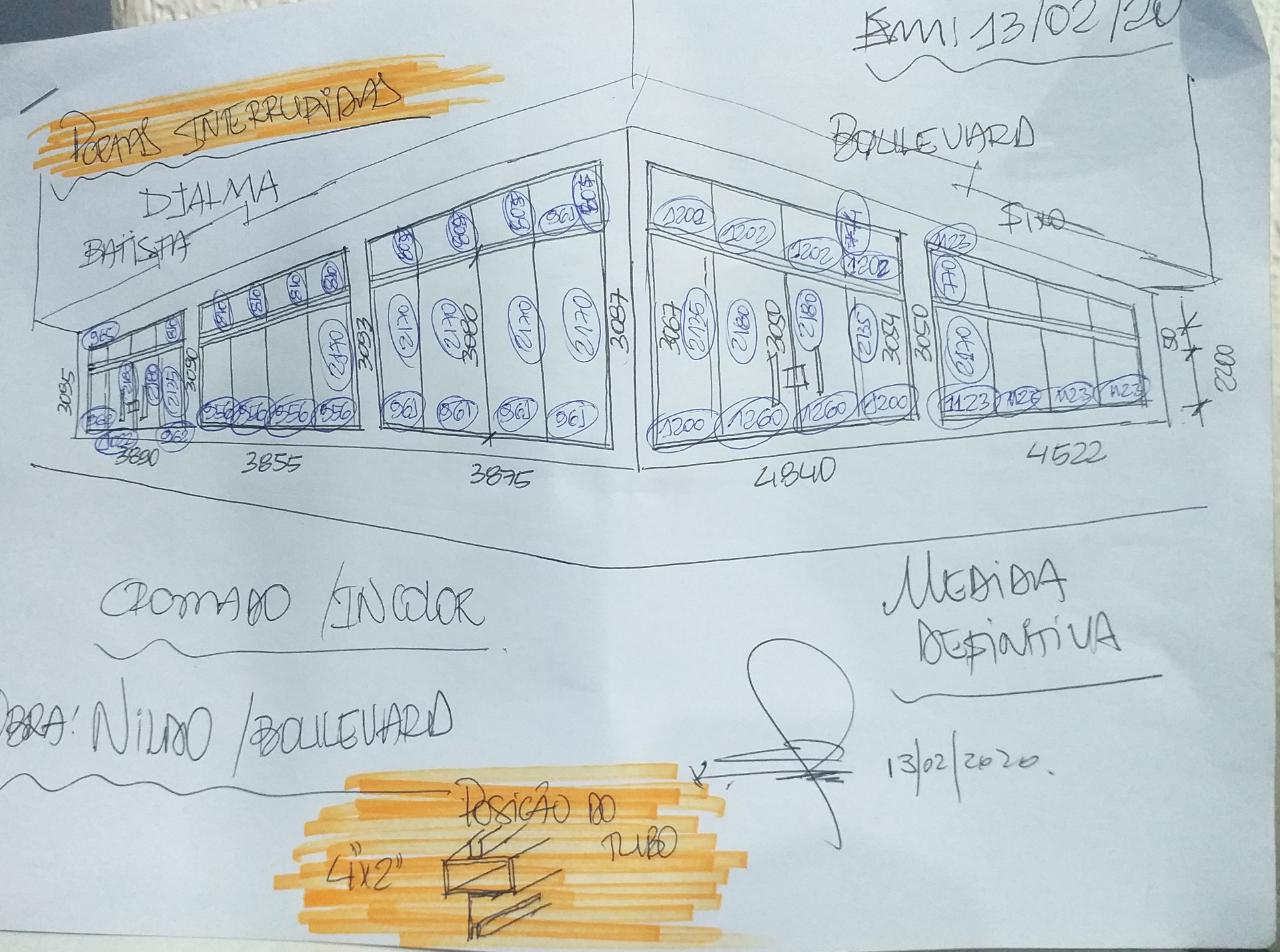 Em: 13/02/20
PORTAS INTERRUPIDAS
BOULEVARD
DJALMA
BATISTA
FIXO
805 805 805 961 805
1202 1202 1202 1202
1123
770
810 810 810 810
2170 2170 2170 2170
3080
2125 2180 2180 2135
2170
2170
3095 3090 3093 3087 3067 3050 3054 3050
50
2200
956 956 956 956
961 961 961 961
1200 1260 1260 1200
1123 1123 1123 1123
3890
3855
3875
4840
4522
CROMADO / INCOLOR
MEDIDA
DEFINITIVA
OBRA: NILDO / BOULEVARD
13/02/2020.
POSIÇÃO DO
TUBO
4"x2"